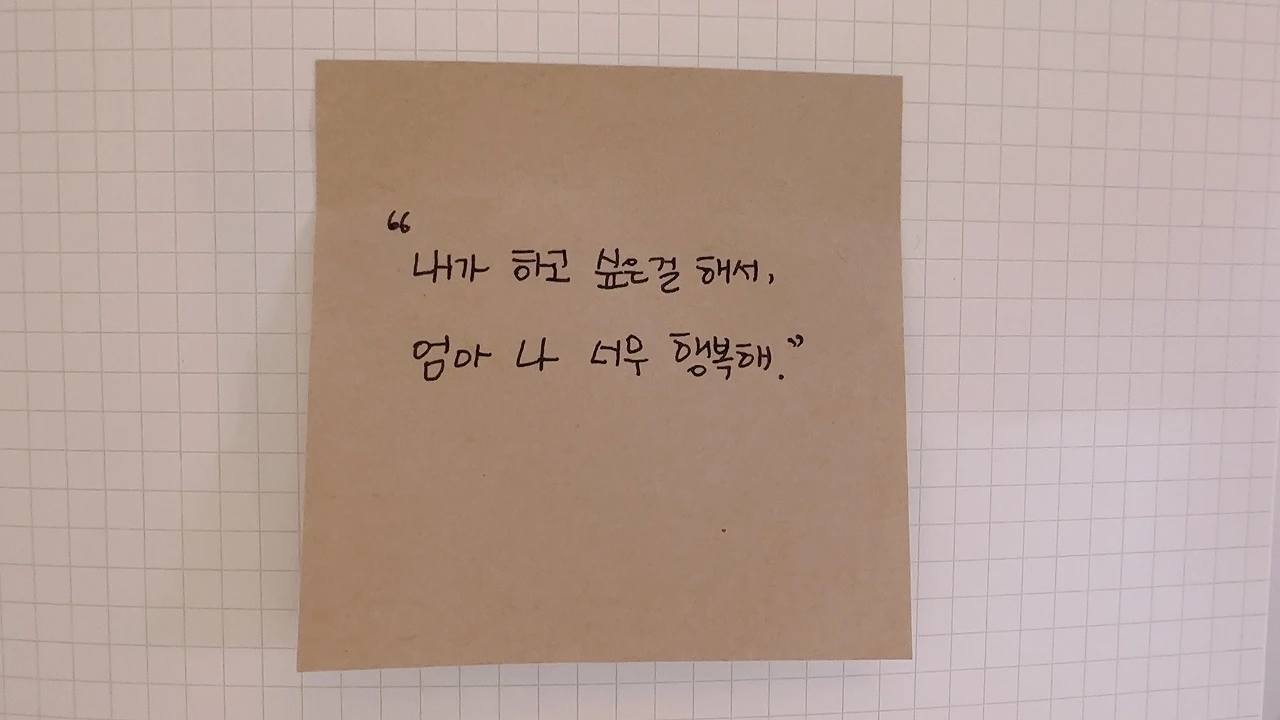 “내가 하고 싶은걸 해서,
엄마 나 너무 행복해.”